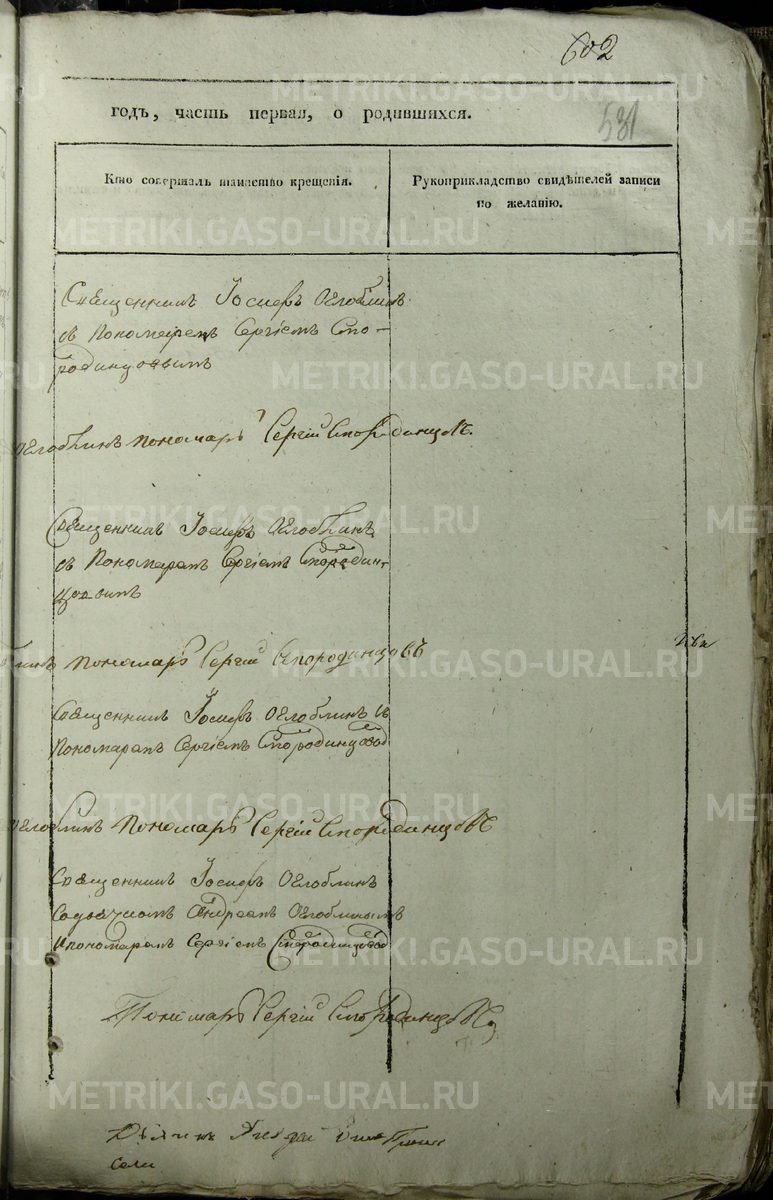 602
531
годъ, часть первая, о родившихся.
Кто совершалъ таинство крещенія.
Рукоприкладство свидѣтелей записи
по желанію.
Священникъ Іосифъ Оглоблинъ
съ Пономаремъ Сергіемъ Смо-
родинцовымъ
Оглоблинъ пономарь Сергій Смородинцовъ.
Священникъ Іосифъ Оглоблинъ
съ Пономаремъ Сергіемъ Смородин-
цовымъ
пономарь Сергій Смородинцовъ
Священникъ Іосифъ Оглоблинъ съ
Пономаремъ Сергіемъ Смородинцовод
Оглоблинъ Пономарь Сергій Смородинцовъ
Священникъ Іосифъ Оглоблинъ
Содьячкомъ Андреемъ Оглоблинымъ
ипономаремъ Сергіемъ Смородинцовод
Пономарь Сергій Смородинцовъ
METRIKI.GASO-URAL.RU